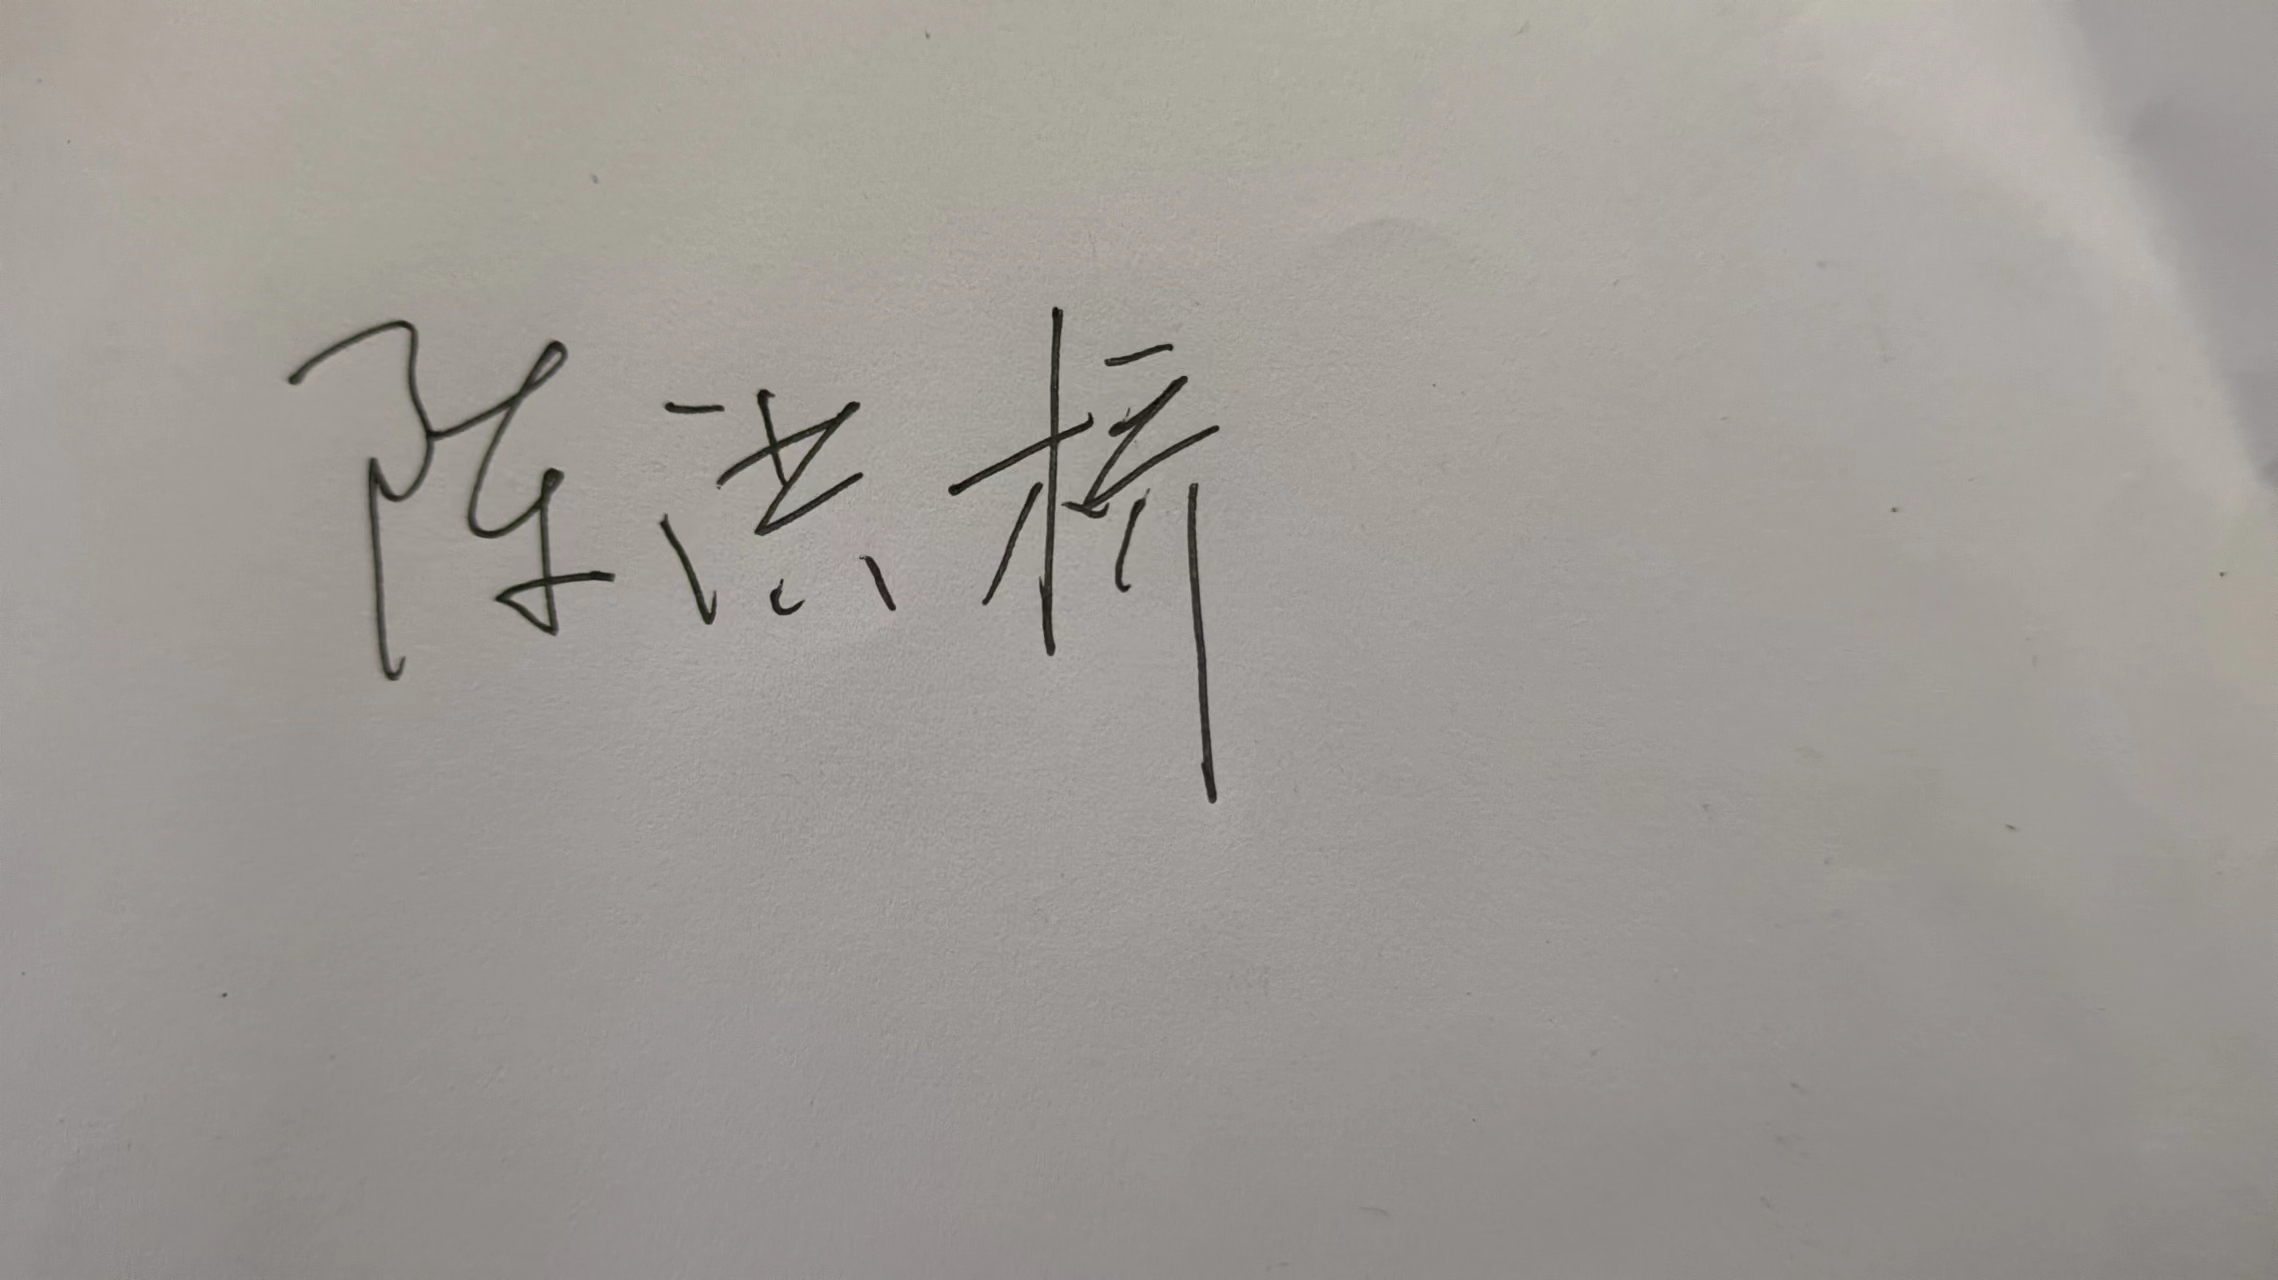 陈洪桥